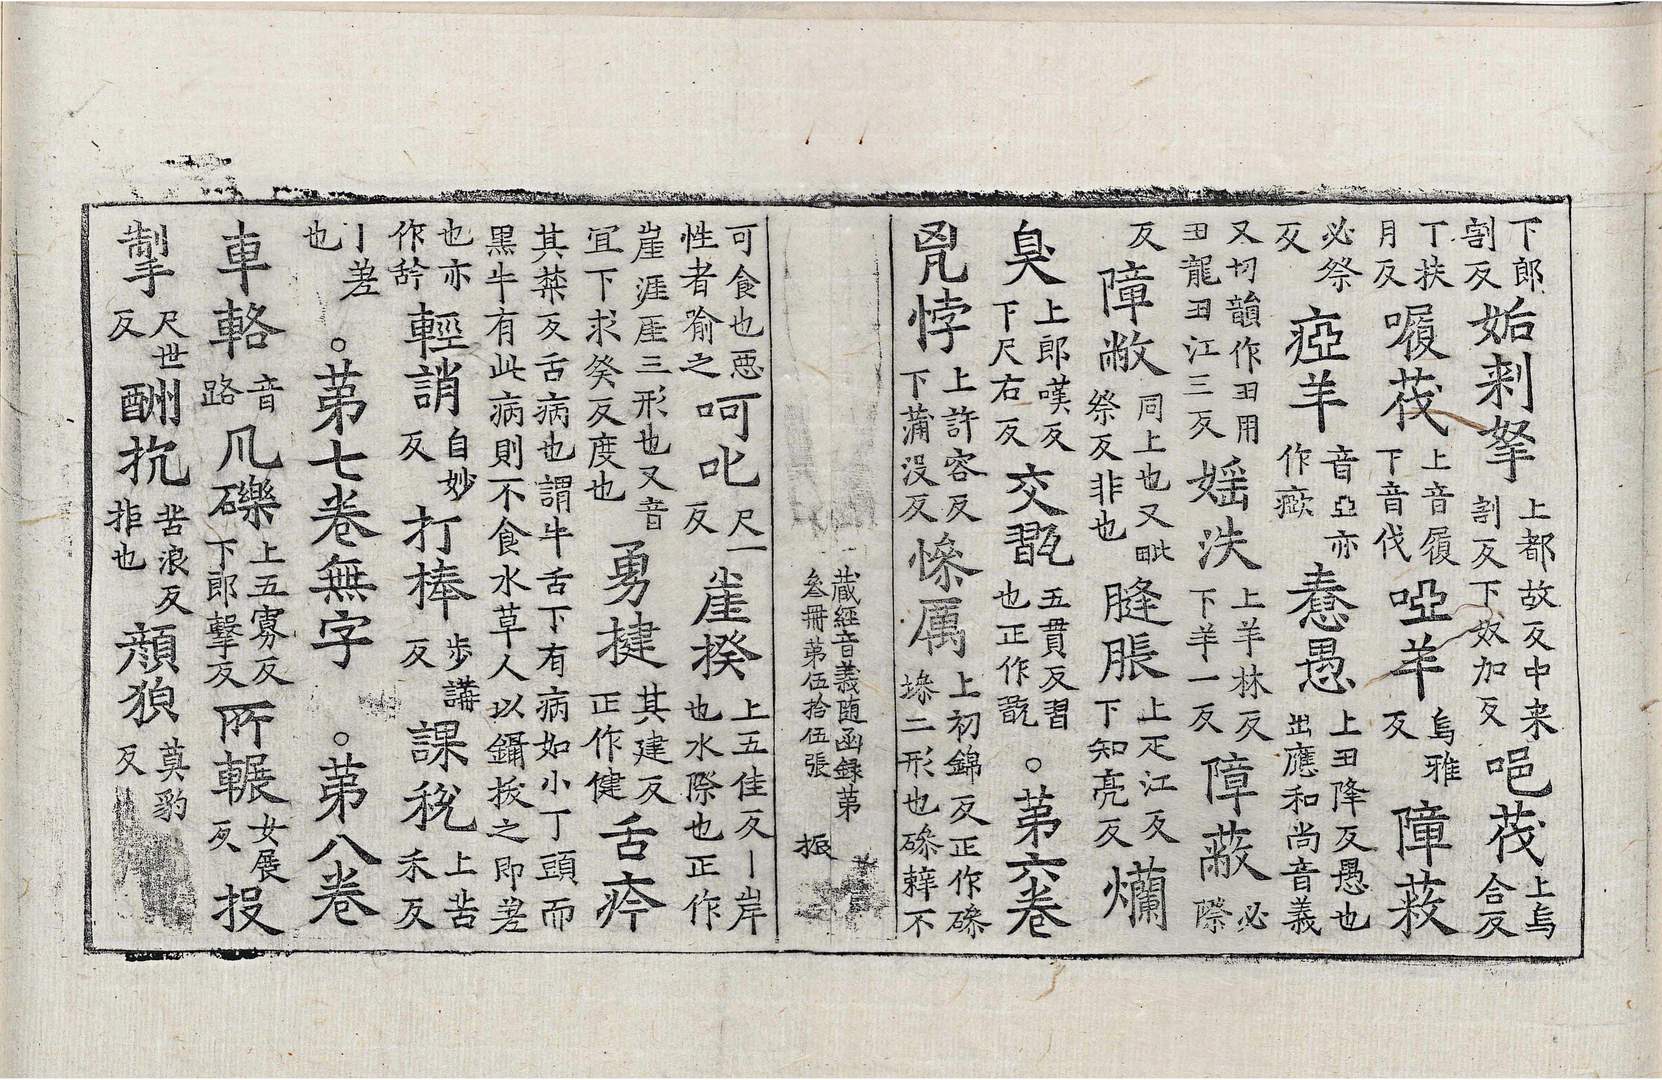 下郎割反 姤剌拏 上都故反中来割反下奴加反 唈茷 上烏合反
丁扶月反 㗼茷 上音履下音伐 啞羊 烏雅反 障蔽
必祭反 瘂羊 音亞亦作瘂 惷愚 上丑降反愚也出應和尚音義
又切韻作丑用丑龍丑江三反 婬泆 上羊林反下羊一反 障蔽 必際
反 障敝 同上也又毗祭反非也 膖脹 上疋江反下知亮反 爛
臭 上郎嘆反下尺右反 交翫 五貫反習也正作翫 。第六卷
兇悖 上許容反下蒲没反 慘厲 上初錦反正作磣墋二形也磣辢不
藏經音義随函録第叄冊第伍拾伍張 振
可食也惡性者喻之 呵叱 尺一反 崖揆 上五佳反丨岸也水際也正作
崖涯厓三形也又音宜下求癸反度也 勇揵 其建反正作健 舌疨
其禁反舌病也謂牛舌下有病如小丁頭而黑牛有此病則不食水草人以鑷拔之即差
也亦作䶖 輕誚 自妙反 打棒 步講反 課稅 上苦禾反
丨差也 。第七卷無字 。第八卷
車輅 音路 凡礫 上五寡反下郎擊反 所輾 女展反 投
掣 尺世反 酬抗 苦浪反拒也 顏㹸 莫豹反